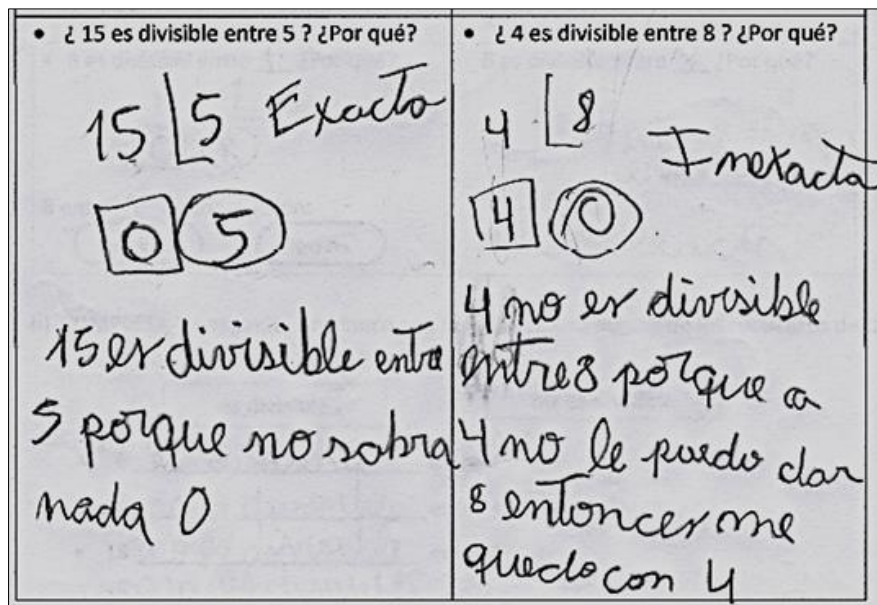 • ¿ 15 es divisible entre 5 ? ¿Por qué?
15 5 Exacto
0 5
15 es divisible entre
5 porque no sobra
nada 0
• ¿ 4 es divisible entre 8 ? ¿Por qué?
4 8
Inexacta
4 0
4 no es divisible
entre 8 porque a
4 no le puedo dar
8 entonces me
quedo con 4